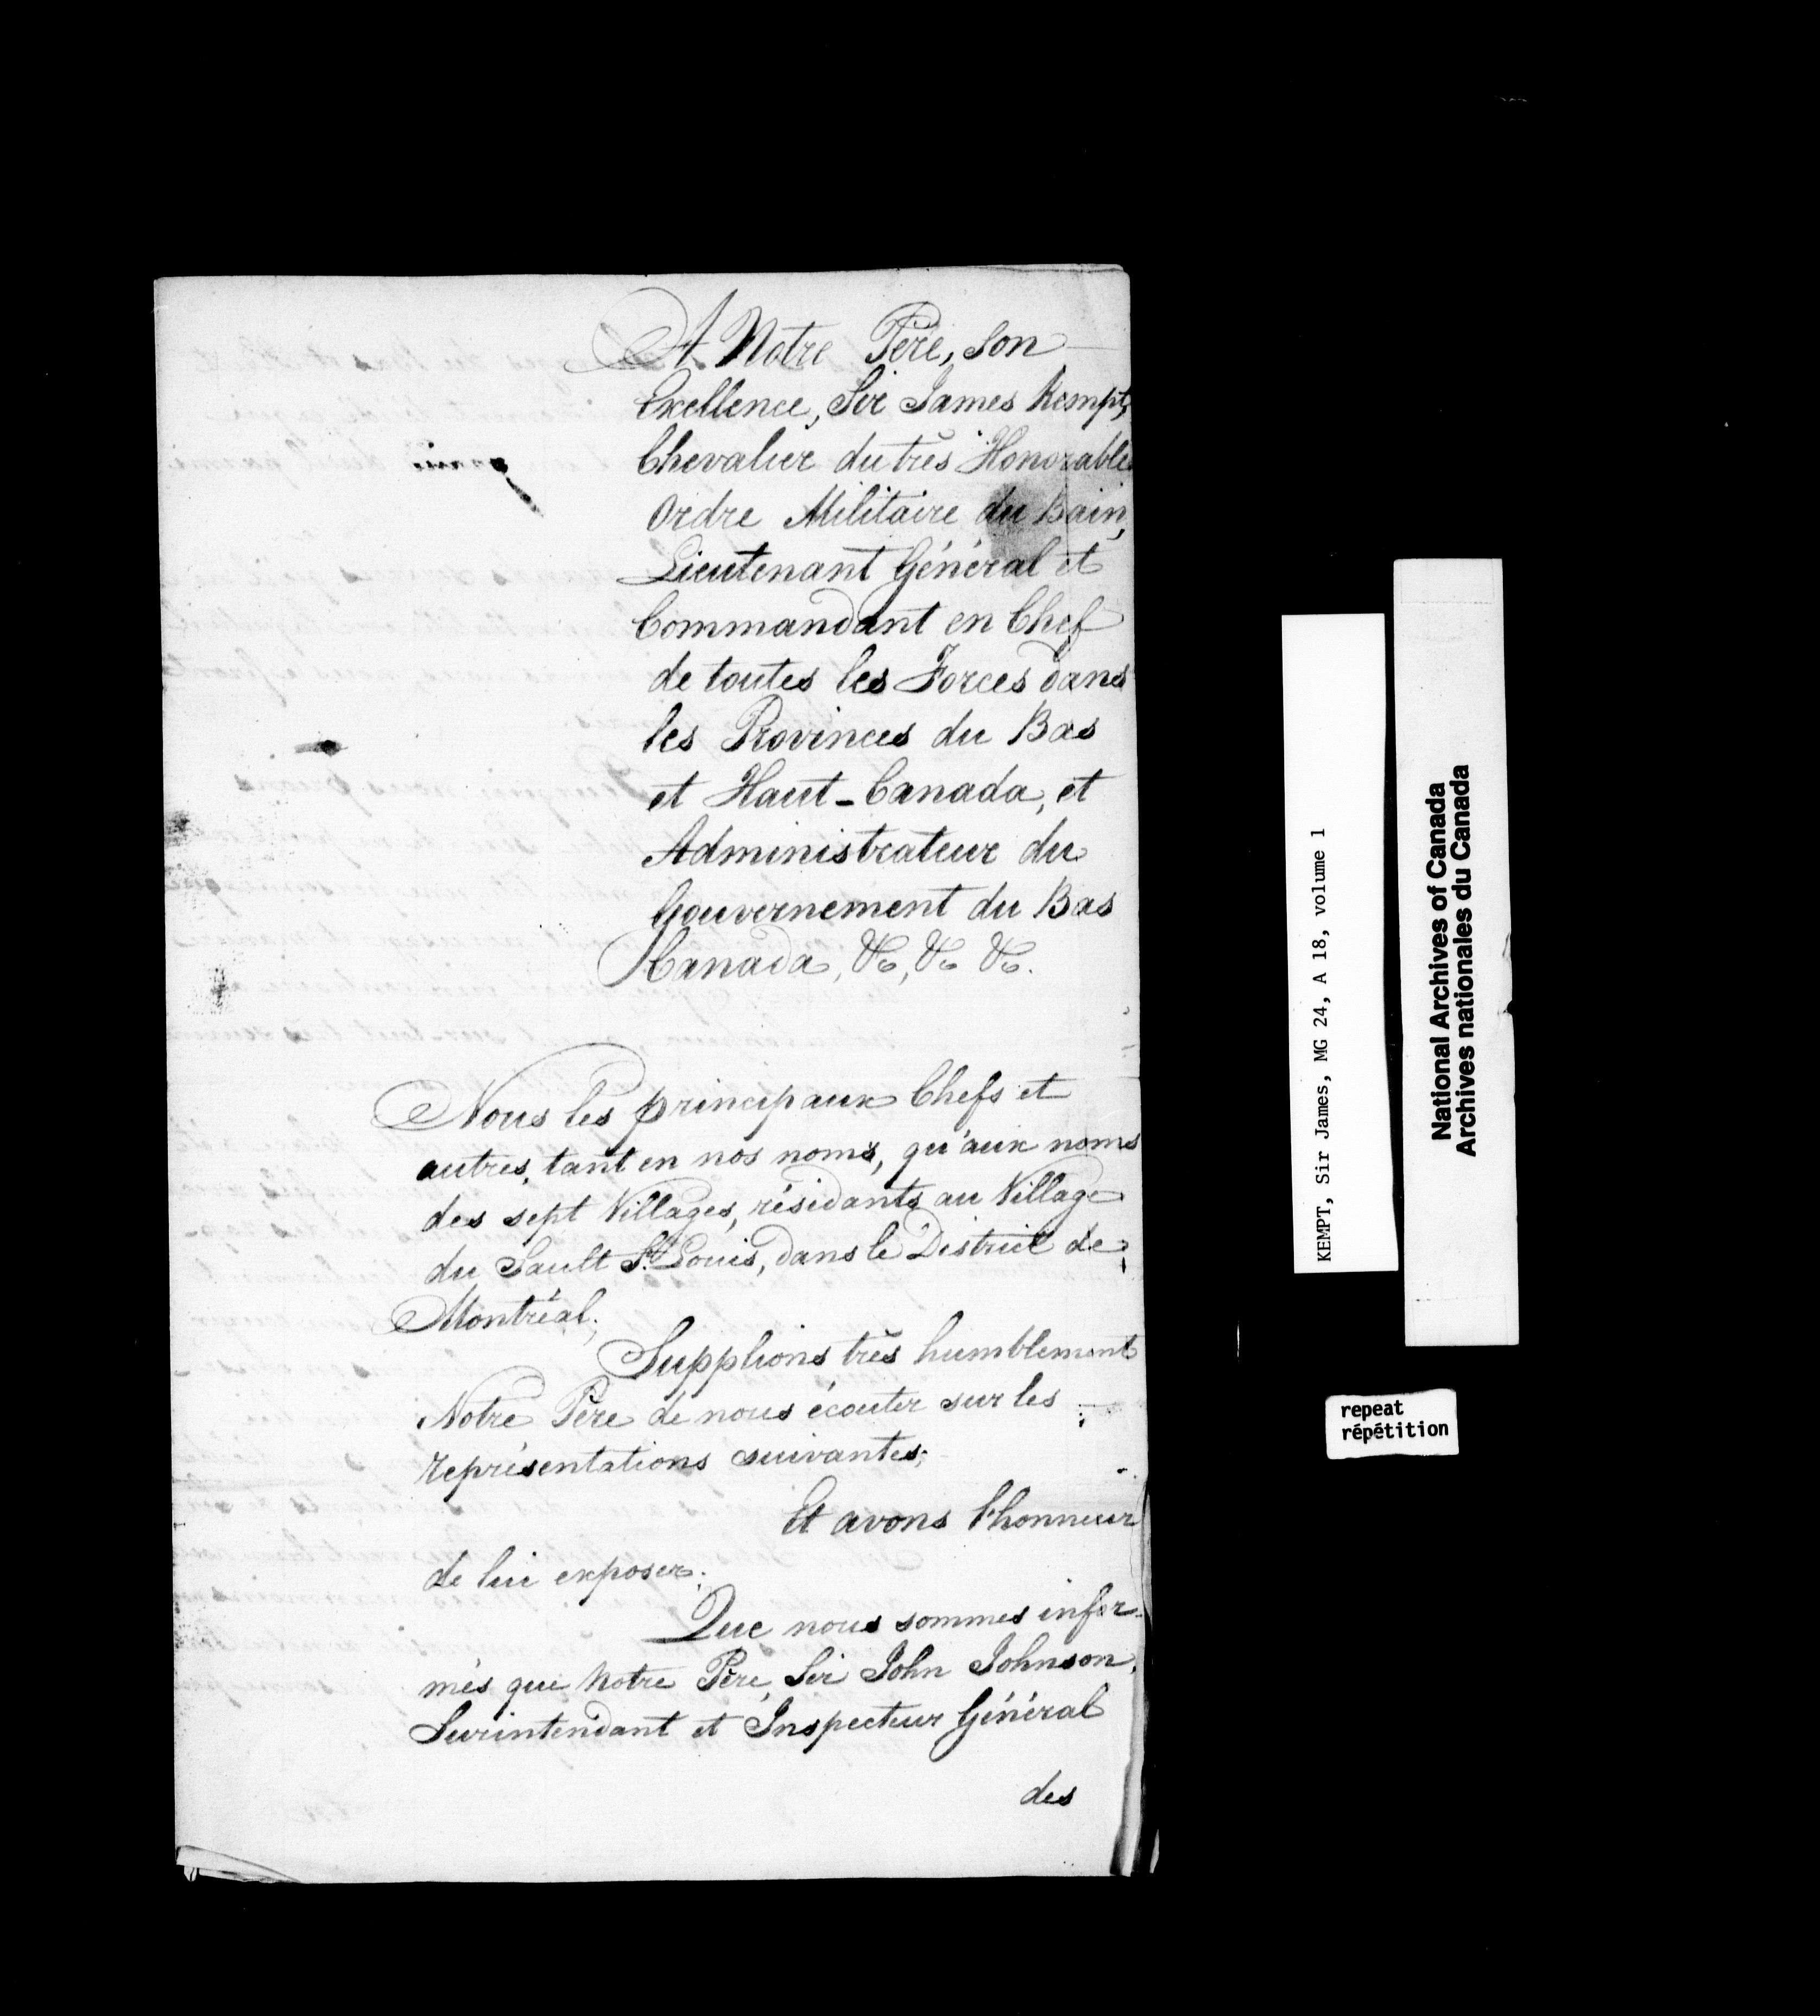 A Notre Père, Son
Exellence, Sir James Kempt,
Chevalier du très Honorable
Ordre Militaire du Bain,
Lieutenant Général et
Commandant en Chef
de toutes les Forces dans
les Provinces du Bas
et Haut-Canada, et
Administrateur du
Gouvernement du Bas
Canada, &c, &c &c.
Nous les principaux Chefs et
autres, tant en nos noms, qu'aux noms
des sept Villages, résidants au Village
du Sault St. Louis, dans le District de
Montréal;
Supplions très humblement
Notre Père de nous écouter sur les
représentations suivantes;
Et avons l'honneur
de lui exposer.
Que nous sommes infor-
més que Notre Père, Sir John Johnson,
Surintendant et Inspecteur Général
des
KEMPT, Sir James, MG 24, A 18, volume 1
National Archives of Canada
Archives nationales du Canada
repeat
répétition